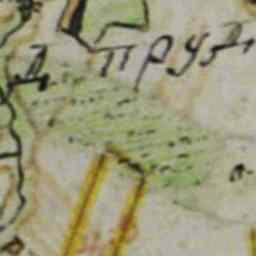 Д ПРУД